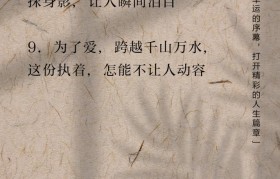 9．为了爱，跨越千山万水，
这份执着，怎能不让人动容
运的序幕，打开精彩的人生篇章」